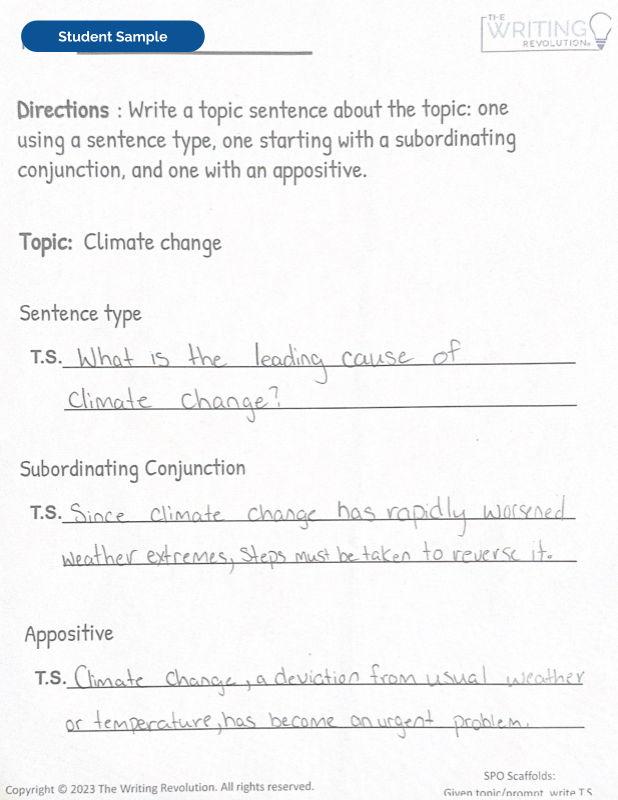 Student Sample
THE
WRITING
REVOLUTION
Directions : Write a topic sentence about the topic: one
using a sentence type, one starting with a subordinating
conjunction, and one with an appositive.
Topic: Climate change
Sentence type
T.S. What is the leading cause of
climate change?
Subordinating Conjunction
T.S. Since climate change has rapidly worsened
weather extremes, steps must be taken to reverse it.
Appositive
T.S. Climate change, a deviation from usual weather
or temperature, has become an urgent problem.
SPO Scaffolds:
Copyright © 2023 The Writing Revolution. All rights reserved.
Given topic/prompt, write T.S.